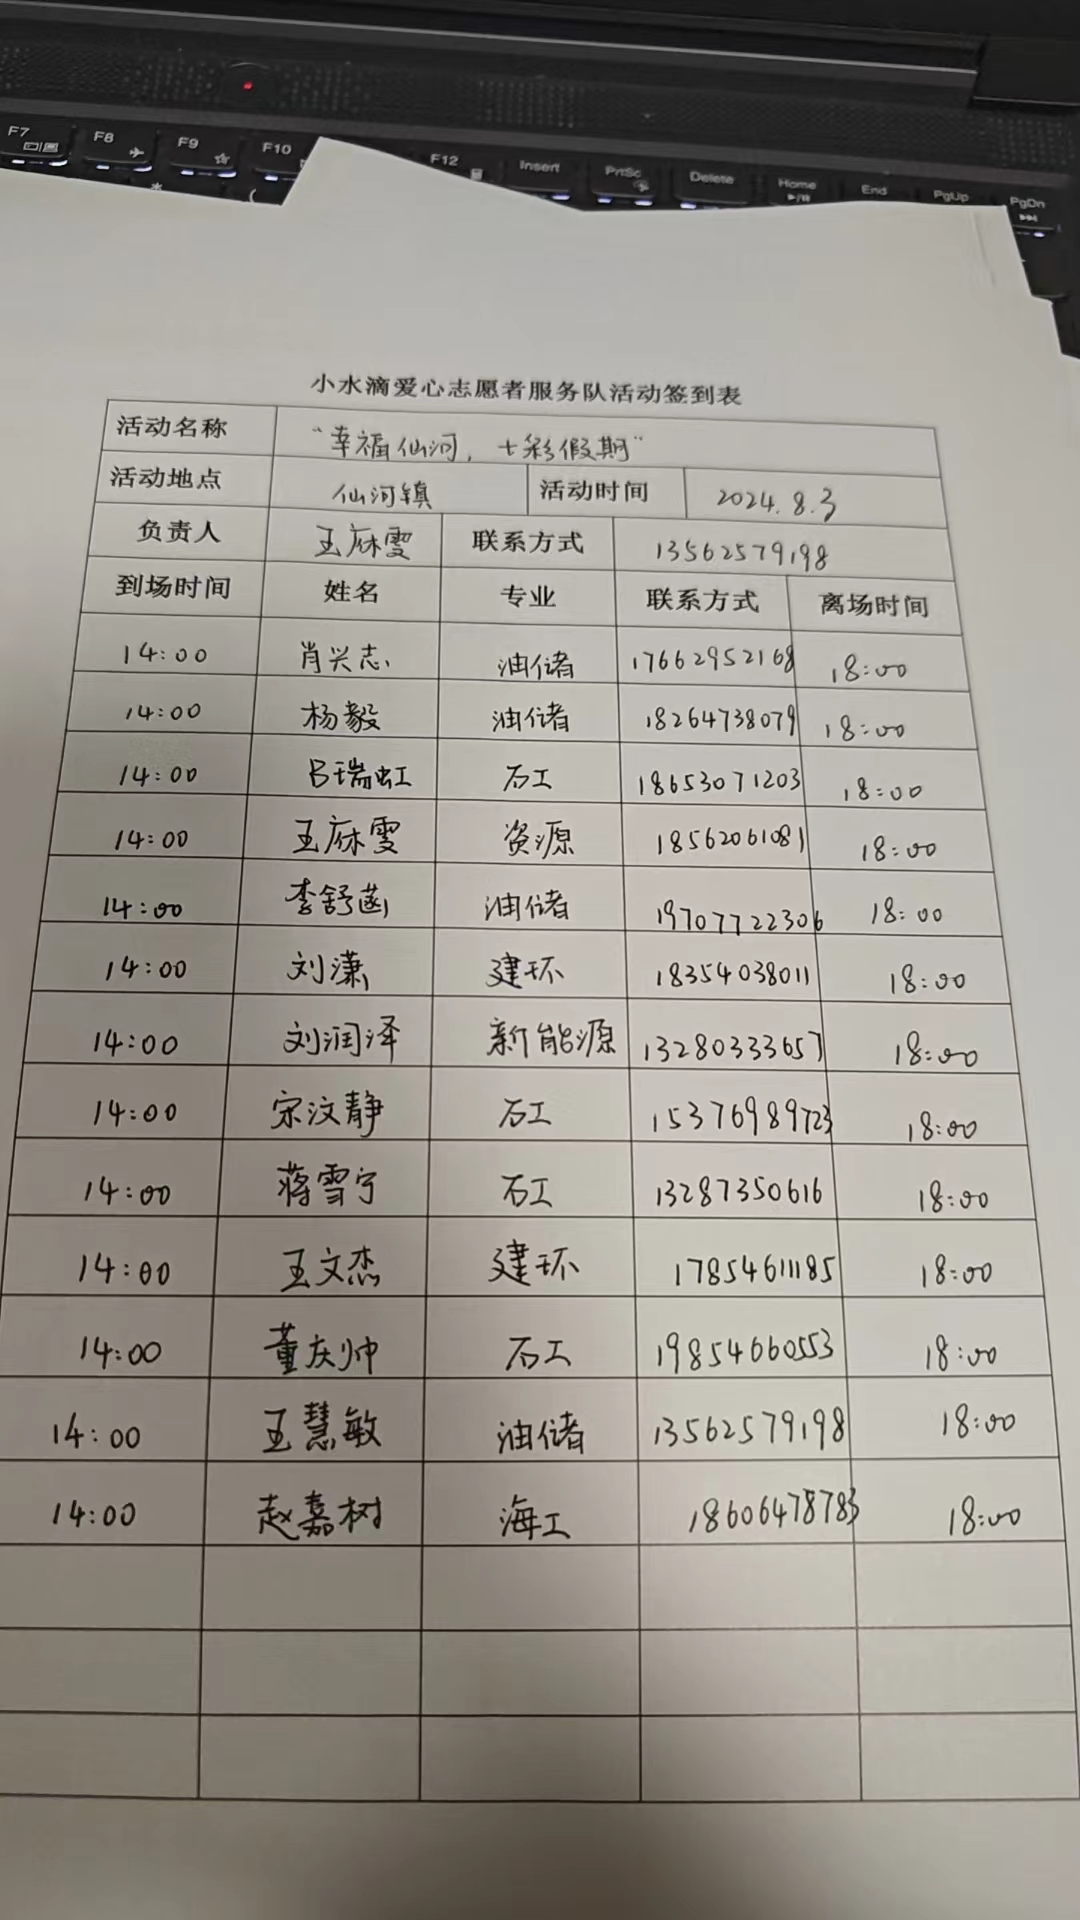 F7 F8 F9 F10 F12 Insert PrtSc Delete Home End PgUp PgDn
小水滴爱心志愿者服务队活动签到表
活动名称 "幸福仙河，七彩假期"
活动地点 仙河镇 活动时间 2024.8.3
负责人 王麻雯 联系方式 13562579198
到场时间 姓名 专业 联系方式 离场时间
14:00 肖兴志 油储 17662952168 18:00
14:00 杨毅 油储 18264738079 18:00
14:00 吕瑞虹 石工 18653071203 18:00
14:00 王麻雯 资源 18562061081 18:00
14:00 李舒菡 油储 19707722306 18:00
14:00 刘潇 建环 18354038011 18:00
14:00 刘润泽 新能源 13280333657 18:00
14:00 宋汶静 石工 15376989723 18:00
14:00 蒋雪宁 石工 13287350616 18:00
14:00 王文杰 建环 17854611185 18:00
14:00 董庆帅 石工 19854660553 18:00
14:00 王慧敏 油储 13562579198 18:00
14:00 赵嘉树 海工 18606478783 18:00